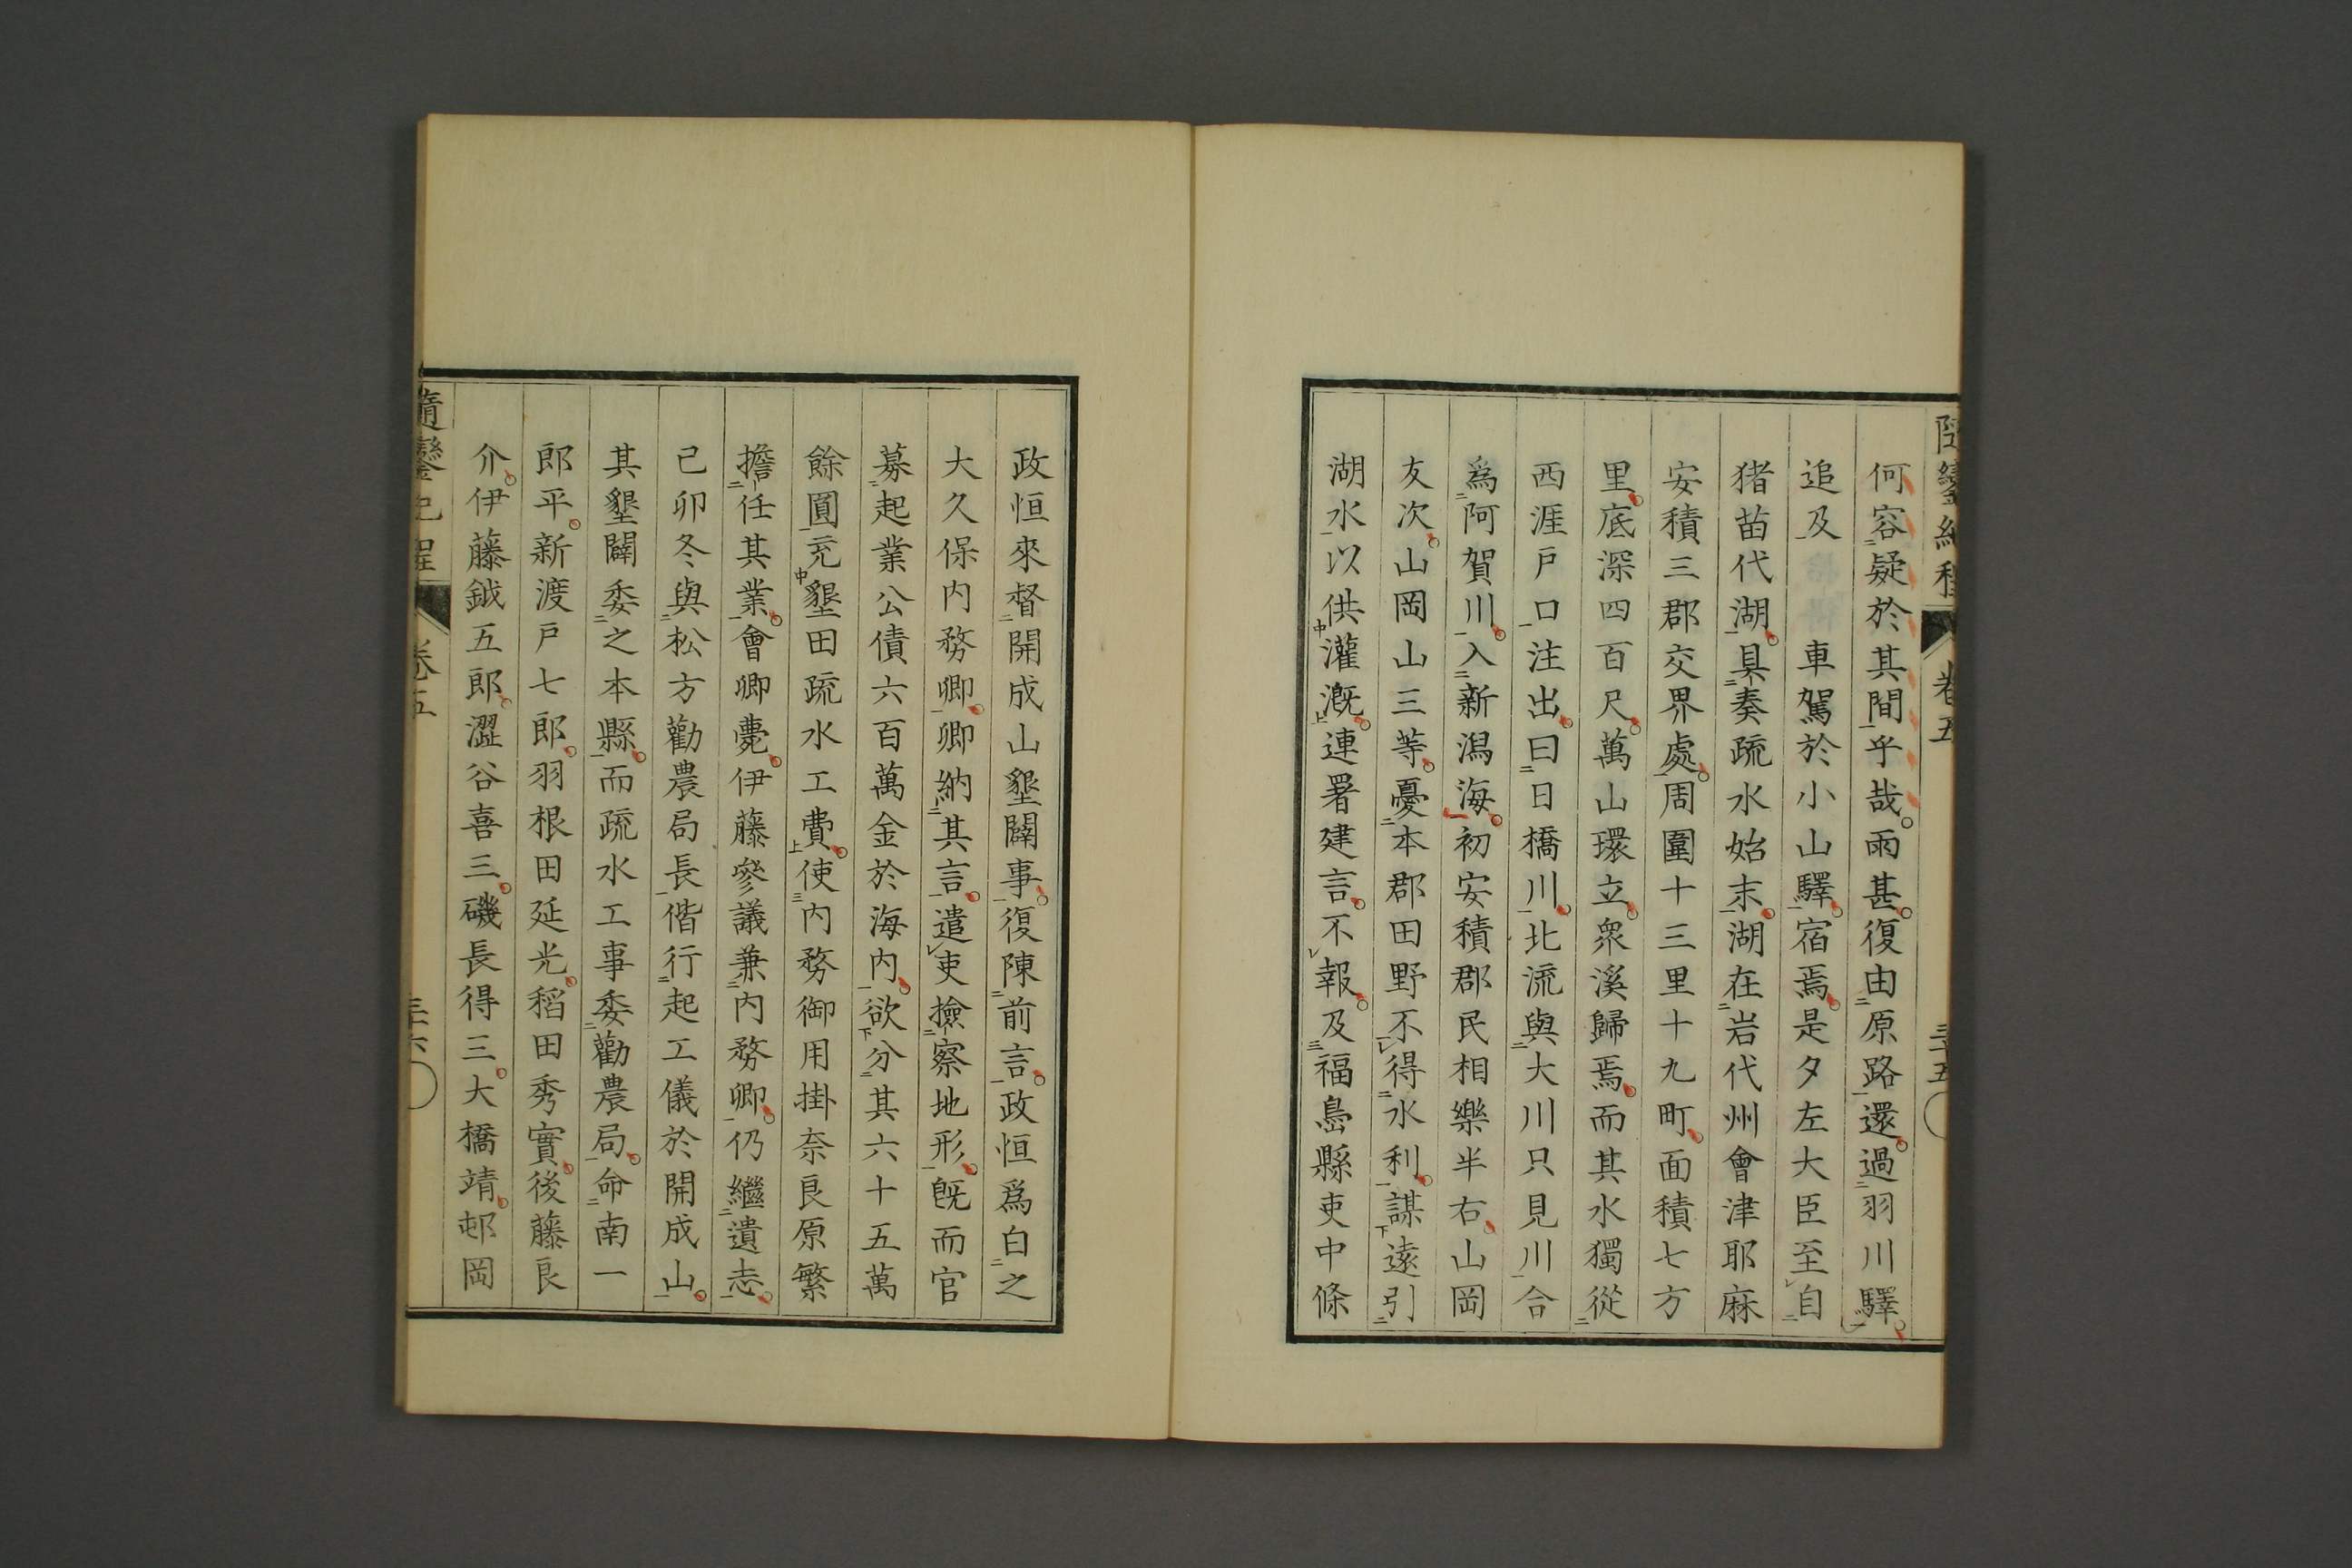 隨鑾紀程 卷五 三十五
何容疑於其間乎哉。雨甚。復由原路還。過羽川驛。
追及 車駕於小山驛。宿焉。是夕左大臣至自
猪苗代湖。具奏疏水始末。湖在岩代州會津耶麻
安積三郡交界處。周圍十三里十九町。面積七方
里。底深四百尺。萬山環立。衆溪歸焉。而其水獨從
西涯戸口注出。曰日橋川。北流與大川只見川合
爲阿賀川。入新潟海。初安積郡民相樂半右。山岡
友次。山岡山三等。憂本郡田野不得水利。謀遠引
湖水以供灌漑。連署建言。不報。及福島縣吏中條
政恒來督開成山墾闢事。復陳前言。政恒爲白之
大久保内務卿。卿納其言。遣吏撿察地形。既而官
募起業公債六百萬金於海内。欲分其六十五萬
餘圓充墾田疏水工費。使内務御用掛奈良原繁
擔任其業。會卿薨。伊藤參議兼内務卿。仍繼遺志。
己卯冬與松方勸農局長偕行起工儀於開成山。
其墾闢委之本縣。而疏水工事委勸農局。命南一
郎平。新渡戸七郎。羽根田延光。稻田秀實。後藤良
介。伊藤鉞五郎。澀谷喜三。磯長得三。大橋靖。邨岡
隨鑾紀程 卷五 三十六